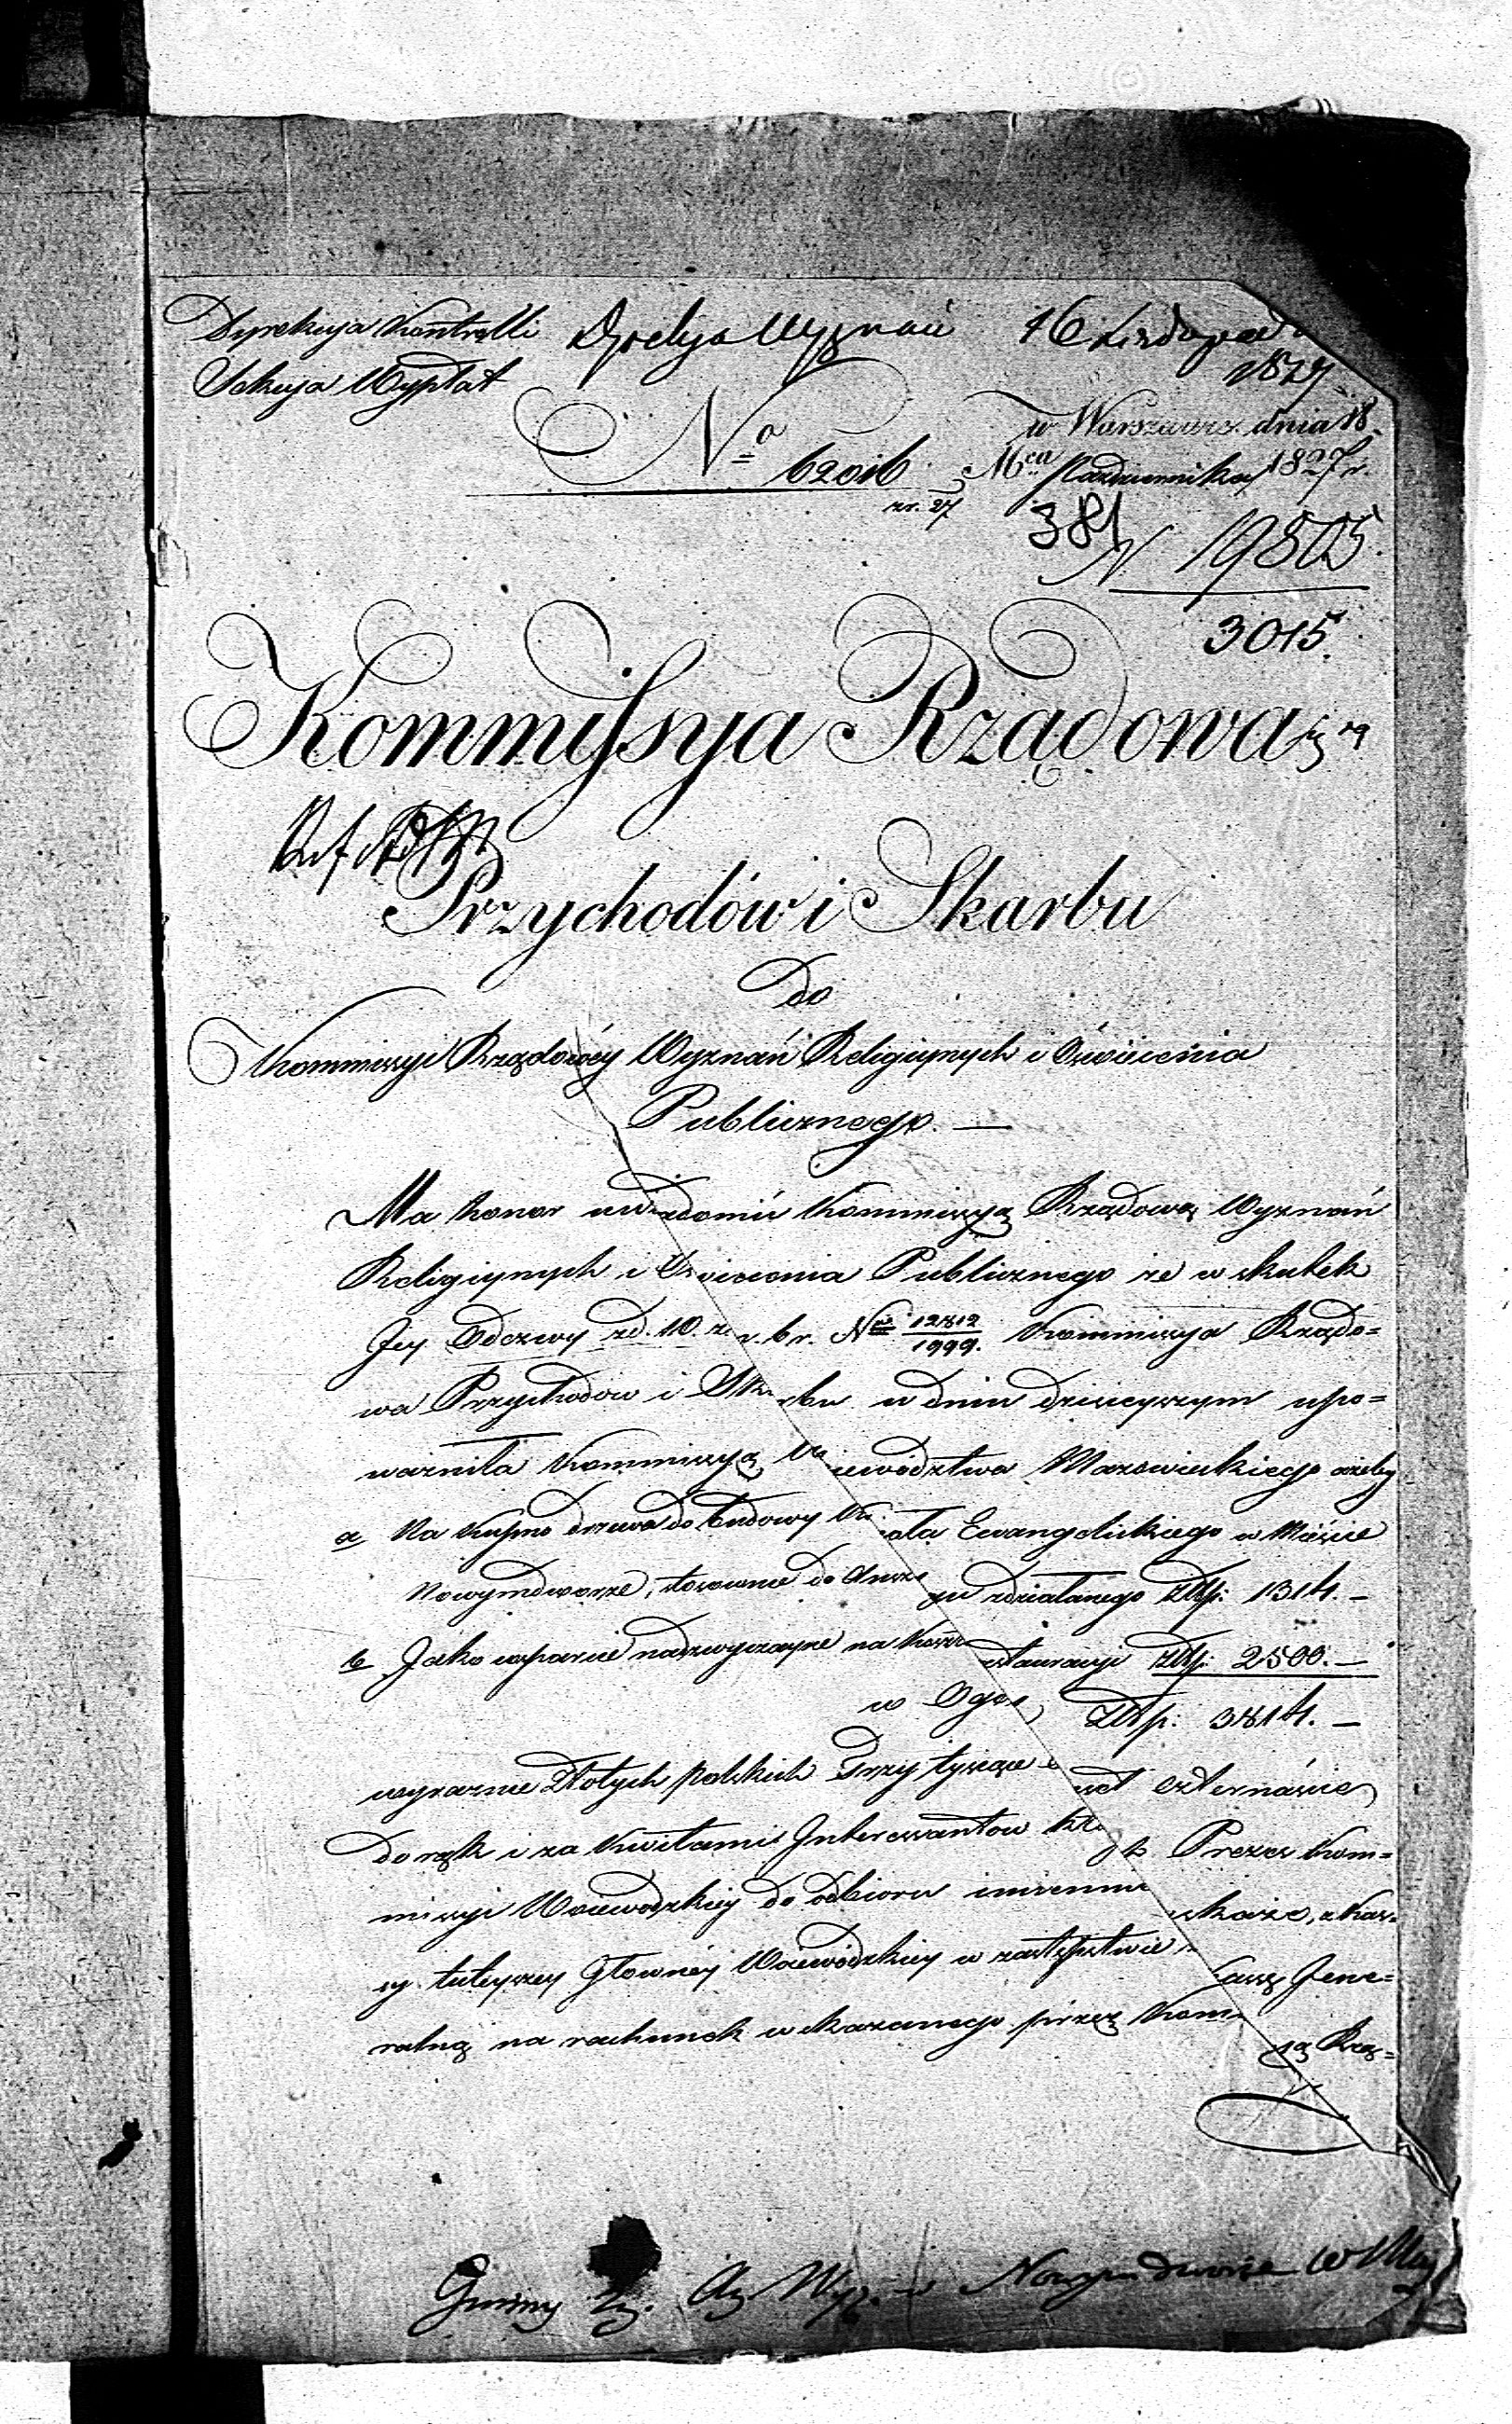 Dyrekcya Kontrolli
Sekcya Wypłat
16 Listopada
1827
w Warszawie dnia 18.
Mca Października 1827 r.
No 62016
381
N 19505
3015.
Kommissya Rządowa
Przychodów i Skarbu
do
Kommissyi Rządowéy Wyznań Religiynych i Oświecenia
Publicznego. —
Ma honor uwiadomić Kommissyą Rządową Wyznań
Religiynych i Oświecenia Publicznego że w skutek
Jey Odezwy z d. 10. b. r. No 12812/1999. Kommissya Rządo=
wa Przychodów i Skarbu w dniu dzisieyszym upo=
ważniła Kommissyą Woiewództwa Mazowieckiego ażeby
a Na kupno drzewa do budowy Kościoła Ewangelickiego w Mieście
Nowymdworze, stosownie do zdziałanego Złtp: 1314. —
b Jako wsparcie nadzwyczayne na Złtp: 2500. —
w Ogóle Złtp: 3814. —
wyraźnie Złotych polskich Trzy tysiące czternaście
do rąk i za kwitami Interessantów Prezes Kom=
missyi Woiewódzkiey do odbioru imiennie wskaże, z Kas=
sy tuteyszey Głównéy Woiewódzkiey w zastępstwie Kassę Jene=
ralną na rachunek wskazanego przez Kommissyą Rzą=
Gminy w Nowymdworze